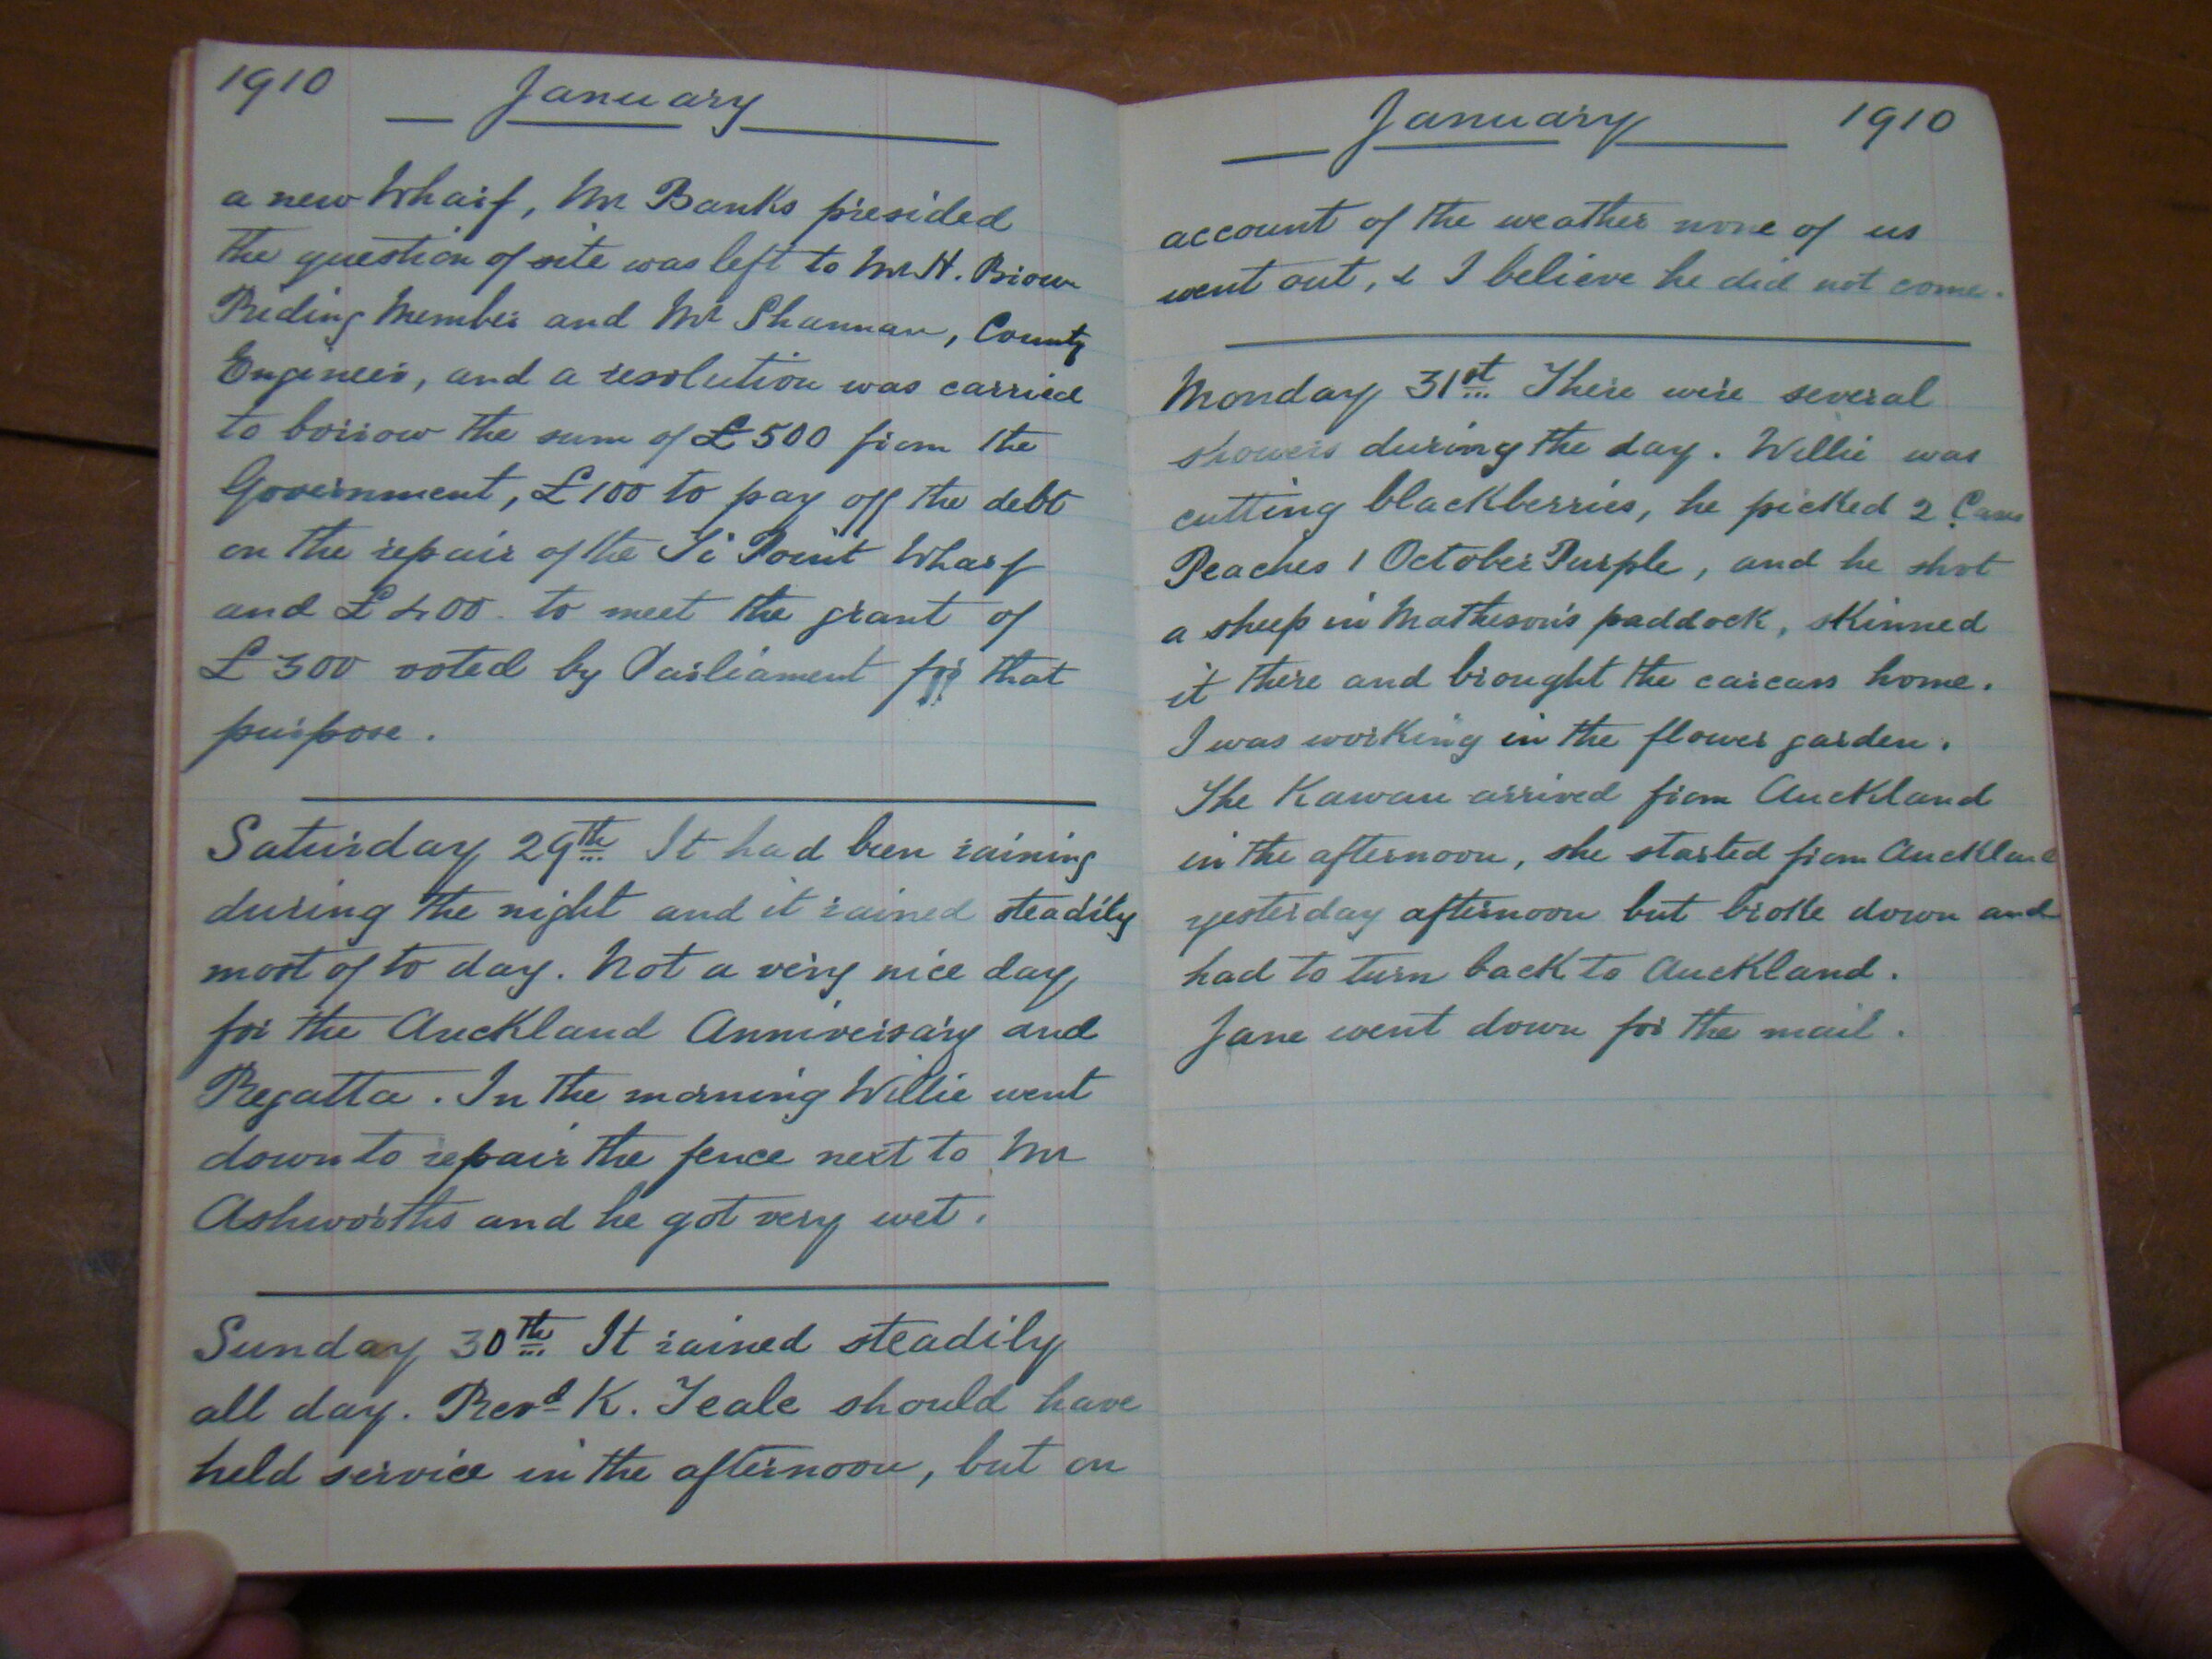 1910 January
a new Wharf, Mr Banks presided
the question of site was left to Mr H. Brown
Riding Member and Mr Shannan, County
Engineer, and a resolution was carried
to borrow the sum of £500 from the
Government, £100 to pay off the debt
on the repair of the Ti Point Wharf
and £400 to meet the grant of
£300 voted by Parliament for that
purpose.
Saturday 29th It had been raining
during the night and it rained steadily
most of to day. Not a very nice day
for the Auckland Anniversary and
Regatta. In the morning Willie went
down to repair the fence next to Mr
Ashworths and he got very wet.
Sunday 30th It rained steadily
all day. Revd K. Teale should have
held service in the afternoon, but on
January 1910
account of the weather none of us
went out, & I believe he did not come.
Monday 31st There were several
showers during the day. Willie was
cutting blackberries, he picked 2 Cases
Peaches 1 October Purple, and he shot
a sheep in Matheson's paddock, skinned
it there and brought the carcass home.
I was working in the flower garden.
The Kawau arrived from Auckland
in the afternoon, she started from Auckland
yesterday afternoon but broke down and
had to turn back to Auckland.
Jane went down for the mail.